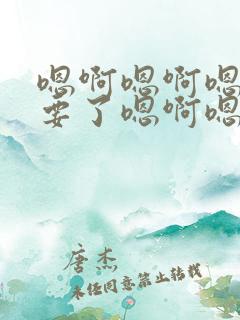 嗯啊嗯啊嗯
要了嗯啊嗯
唐杰
未经同意禁止转载